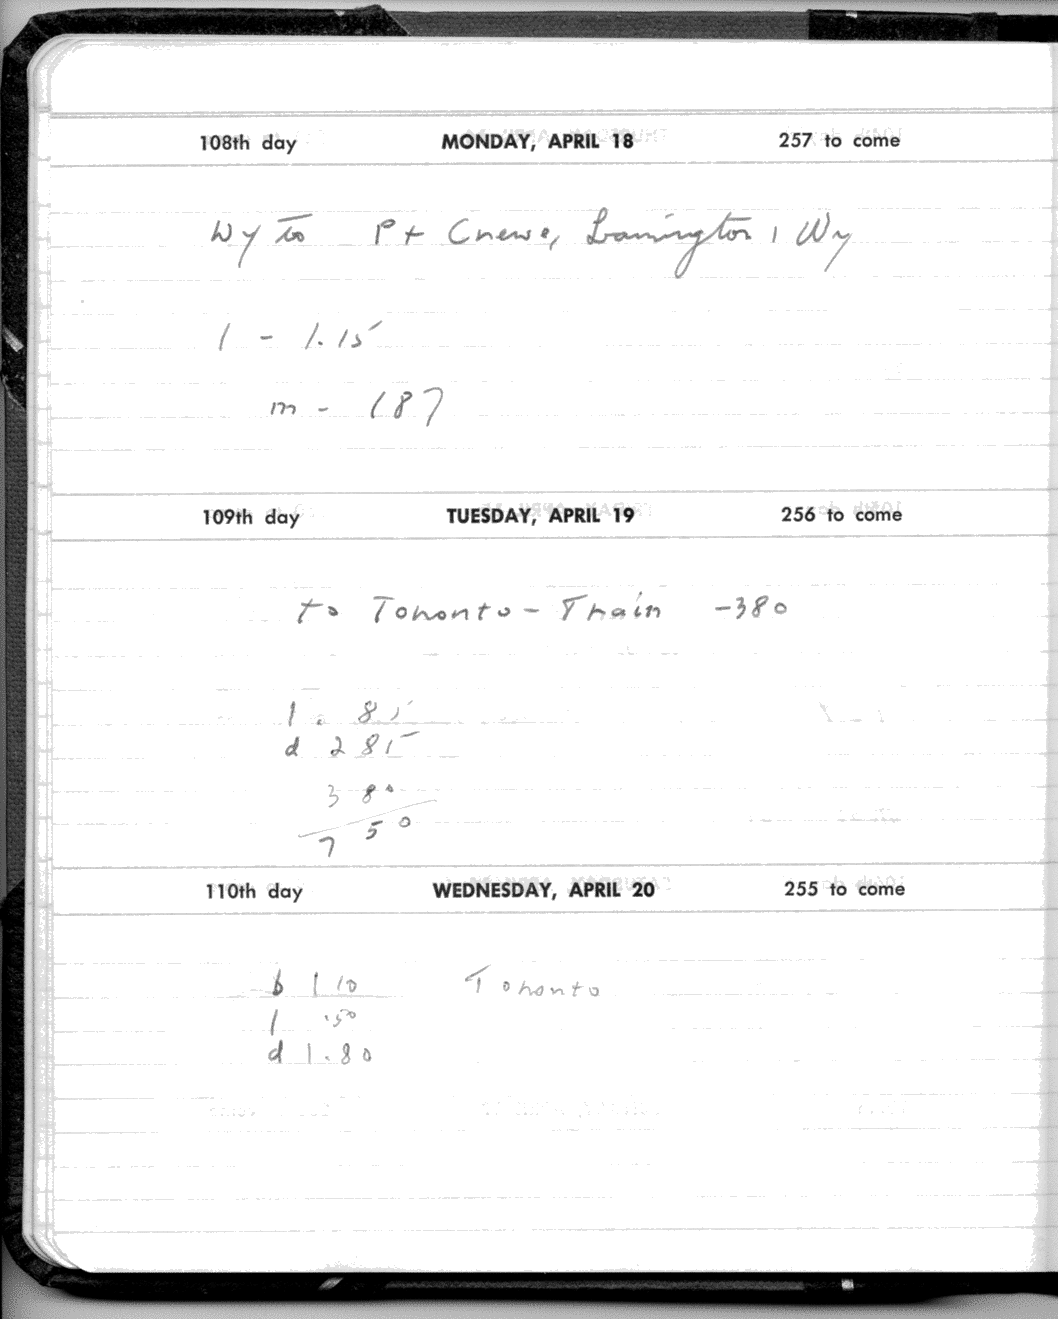 108th day MONDAY, APRIL 18 257 to come
Wy to Pt Crewe, Leamington, Wy
l - 1.15
m - 187
109th day TUESDAY, APRIL 19 256 to come
to Toronto - Train - 380
l . 85
d 2 85
3 80
7 50
110th day WEDNESDAY, APRIL 20 255 to come
b 1 10 Toronto
l .50
d 1.80